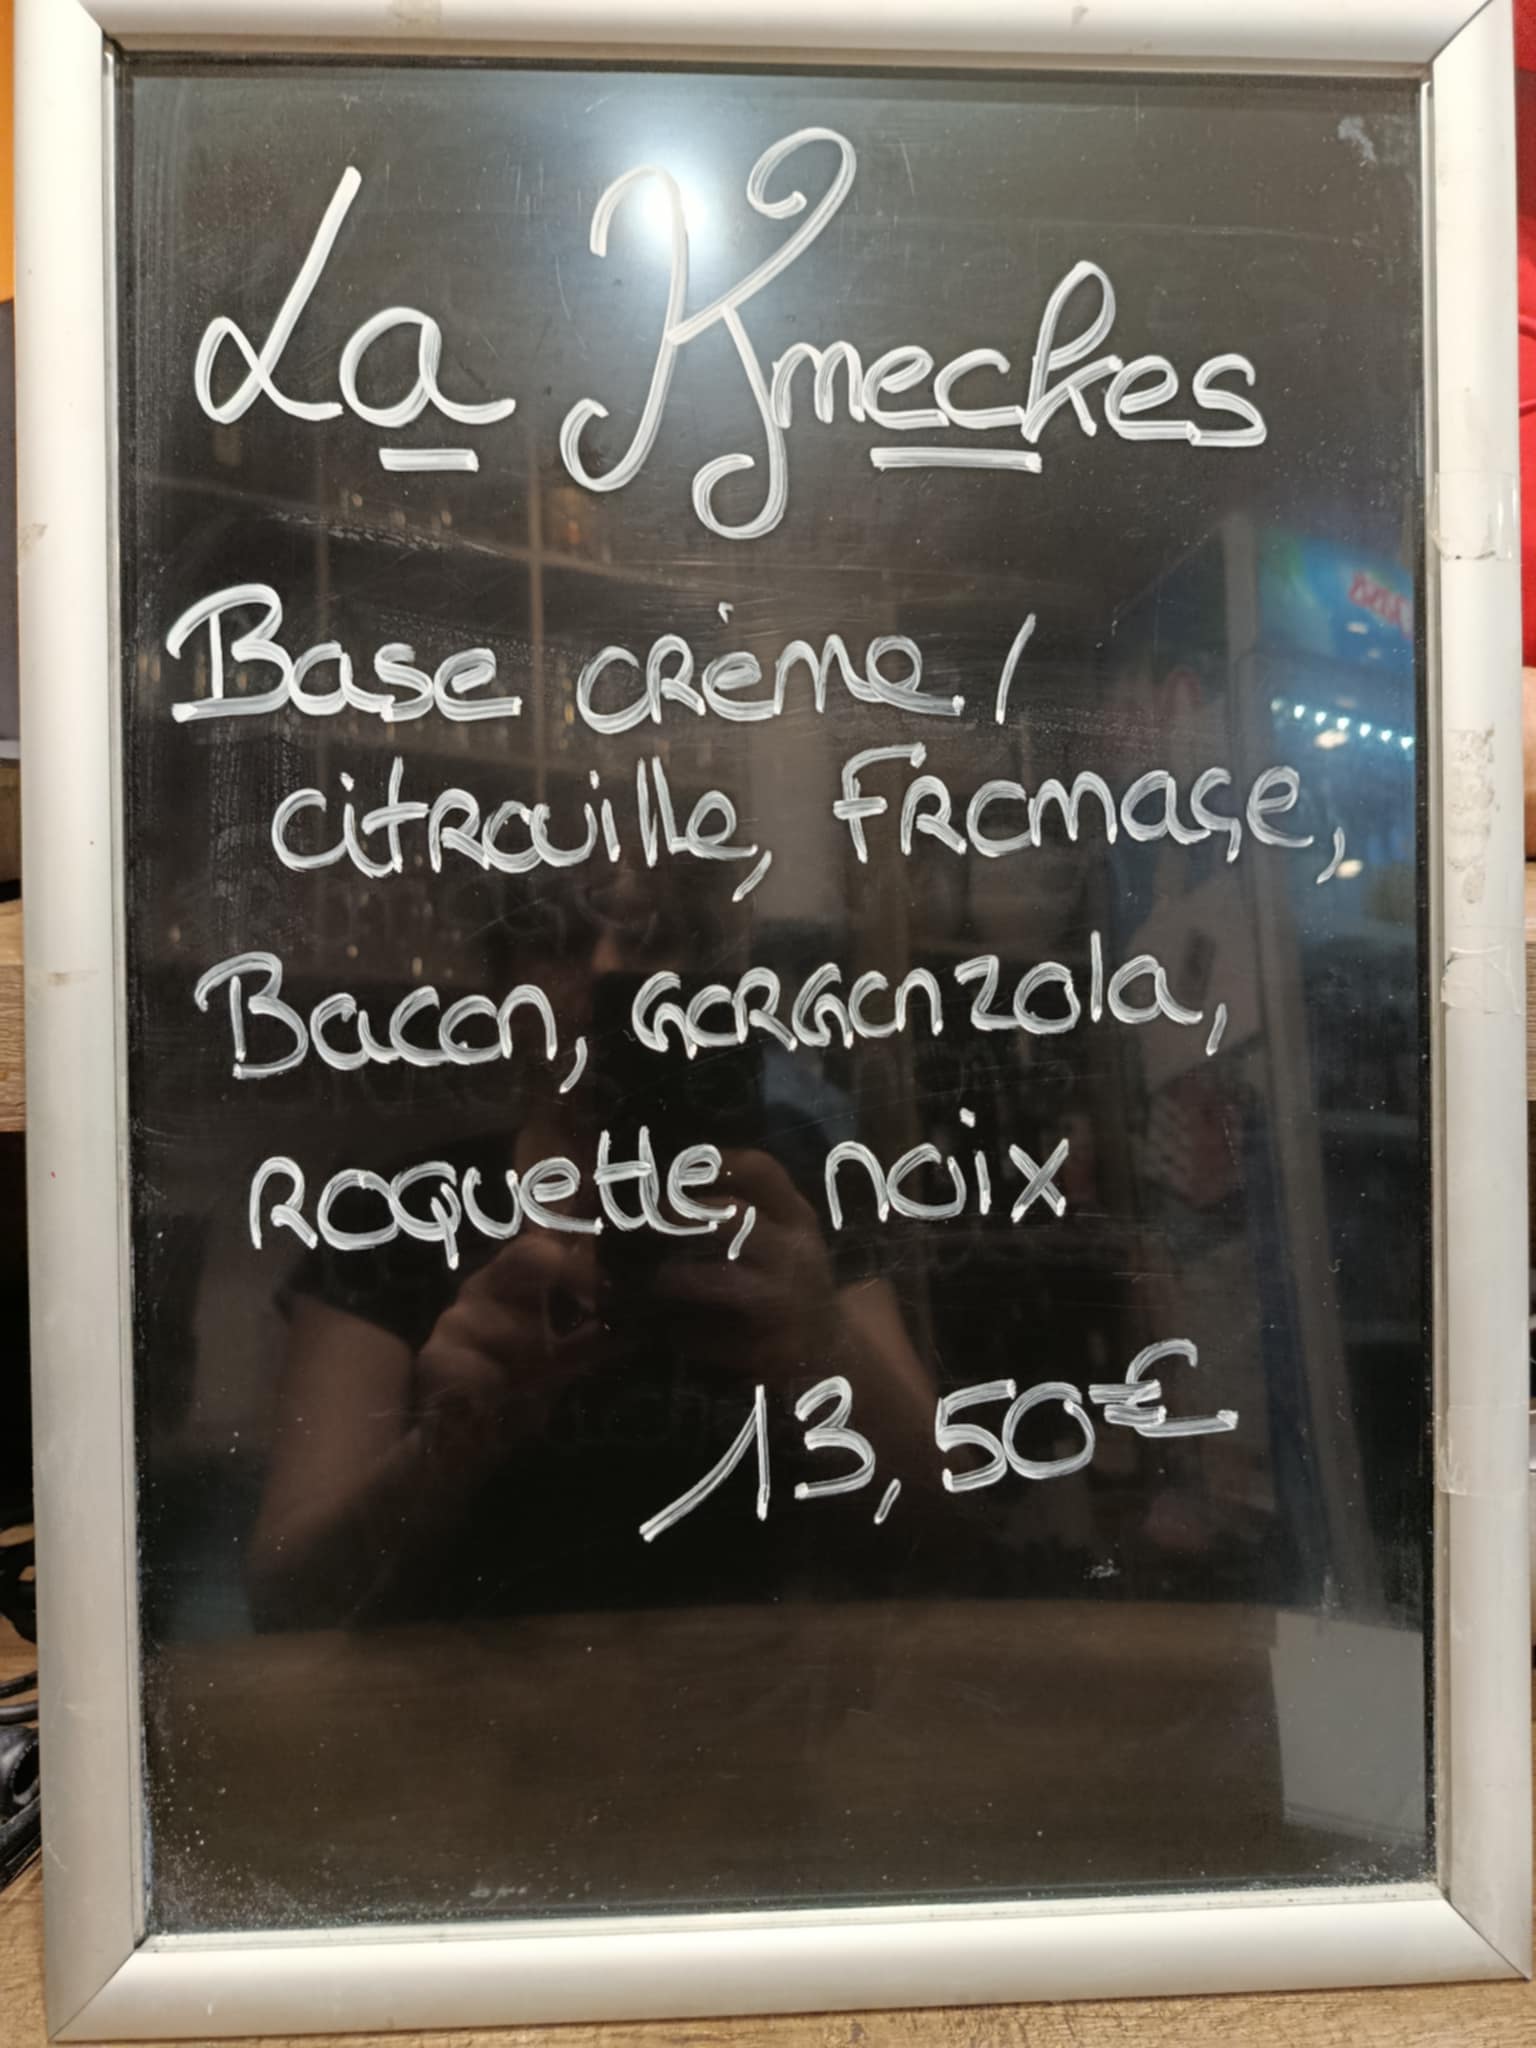 La Kmeckes
Base crème /
citrouille, Fromage,
Bacon, GORGONZOLA,
ROQUETTE, noix
13,50€